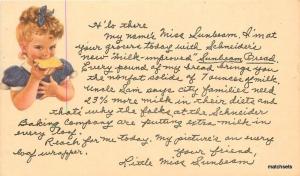 H'lo there
My name's Miss Sunbeam. I'm at
your grocers today with Schneider's
new "milk-improved" Sunbeam Bread.
Every pound of my bread brings you
the nonfat solids of 7 ounces of milk.
Uncle Sam says city families need
23% more milk in their diets and
that's why the folks at the Schneider
Baking Company are putting extra-milk in
every loaf.
Reach for me today. My picture's on every
loaf wrapper.
Your friend,
Little Miss Sunbeam
matchsets